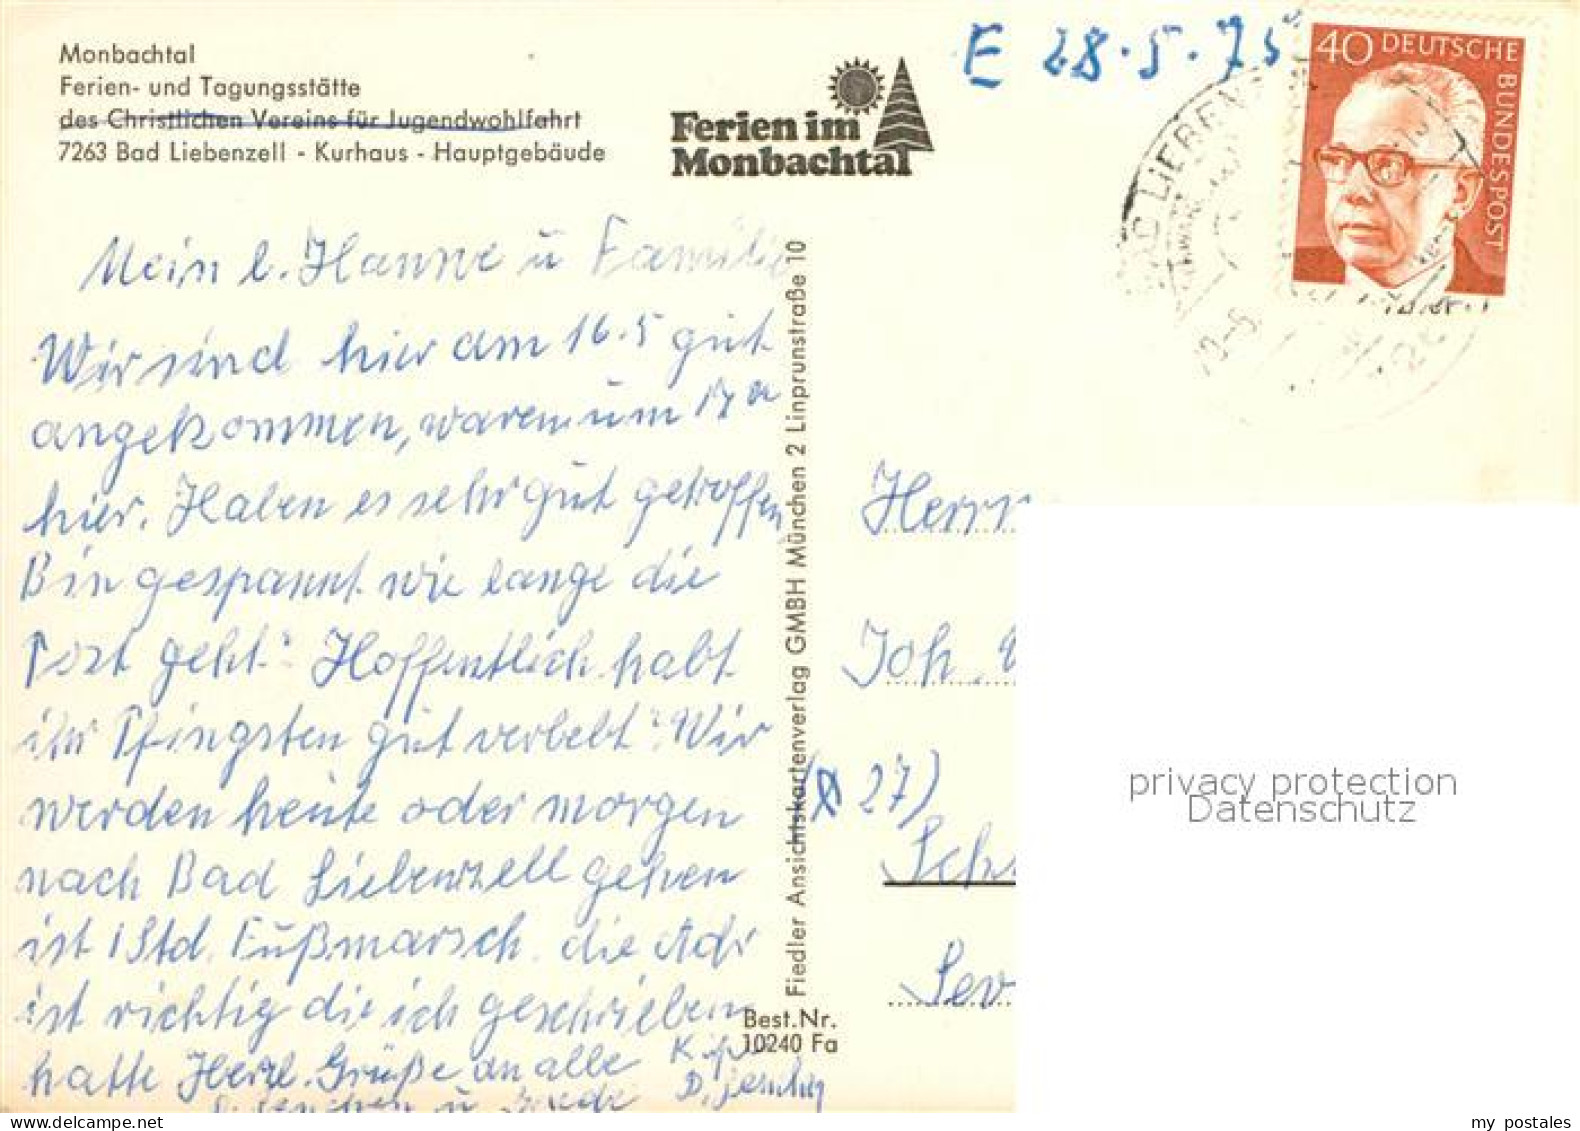 Monbachtal
Ferien- und Tagungsstätte
des Christlichen Vereins für Jugendwohlfahrt
7263 Bad Liebenzell - Kurhaus - Hauptgebäude
Ferien im
Monbachtal
E 28.5.75
40 DEUTSCHE
BUNDESPOST
BAD LIEBEN
Mein l. Hanne u Familie
Wir sind hier am 16.5 gut
angekommen, waren um 17
hier. Haben es sehr gut getroffen
Bin gespannt wie lange die
Post geht? Hoffentlich habt
ihr Pfingsten gut verlebt? Wir
werden heute oder morgen
nach Bad Liebenzell gehen
ist 1 Std. Fußmarsch. die Adr
ist richtig die ich geschrieben
hatte Herzl. Grüße an alle
Fiedler Ansichtskartenverlag GMBH München 2 Linprunstraße 10
Best.Nr.
10240 Fa
Herrn
Joh.
27)
Sch
Sev
privacy protection
Datenschutz
my postales